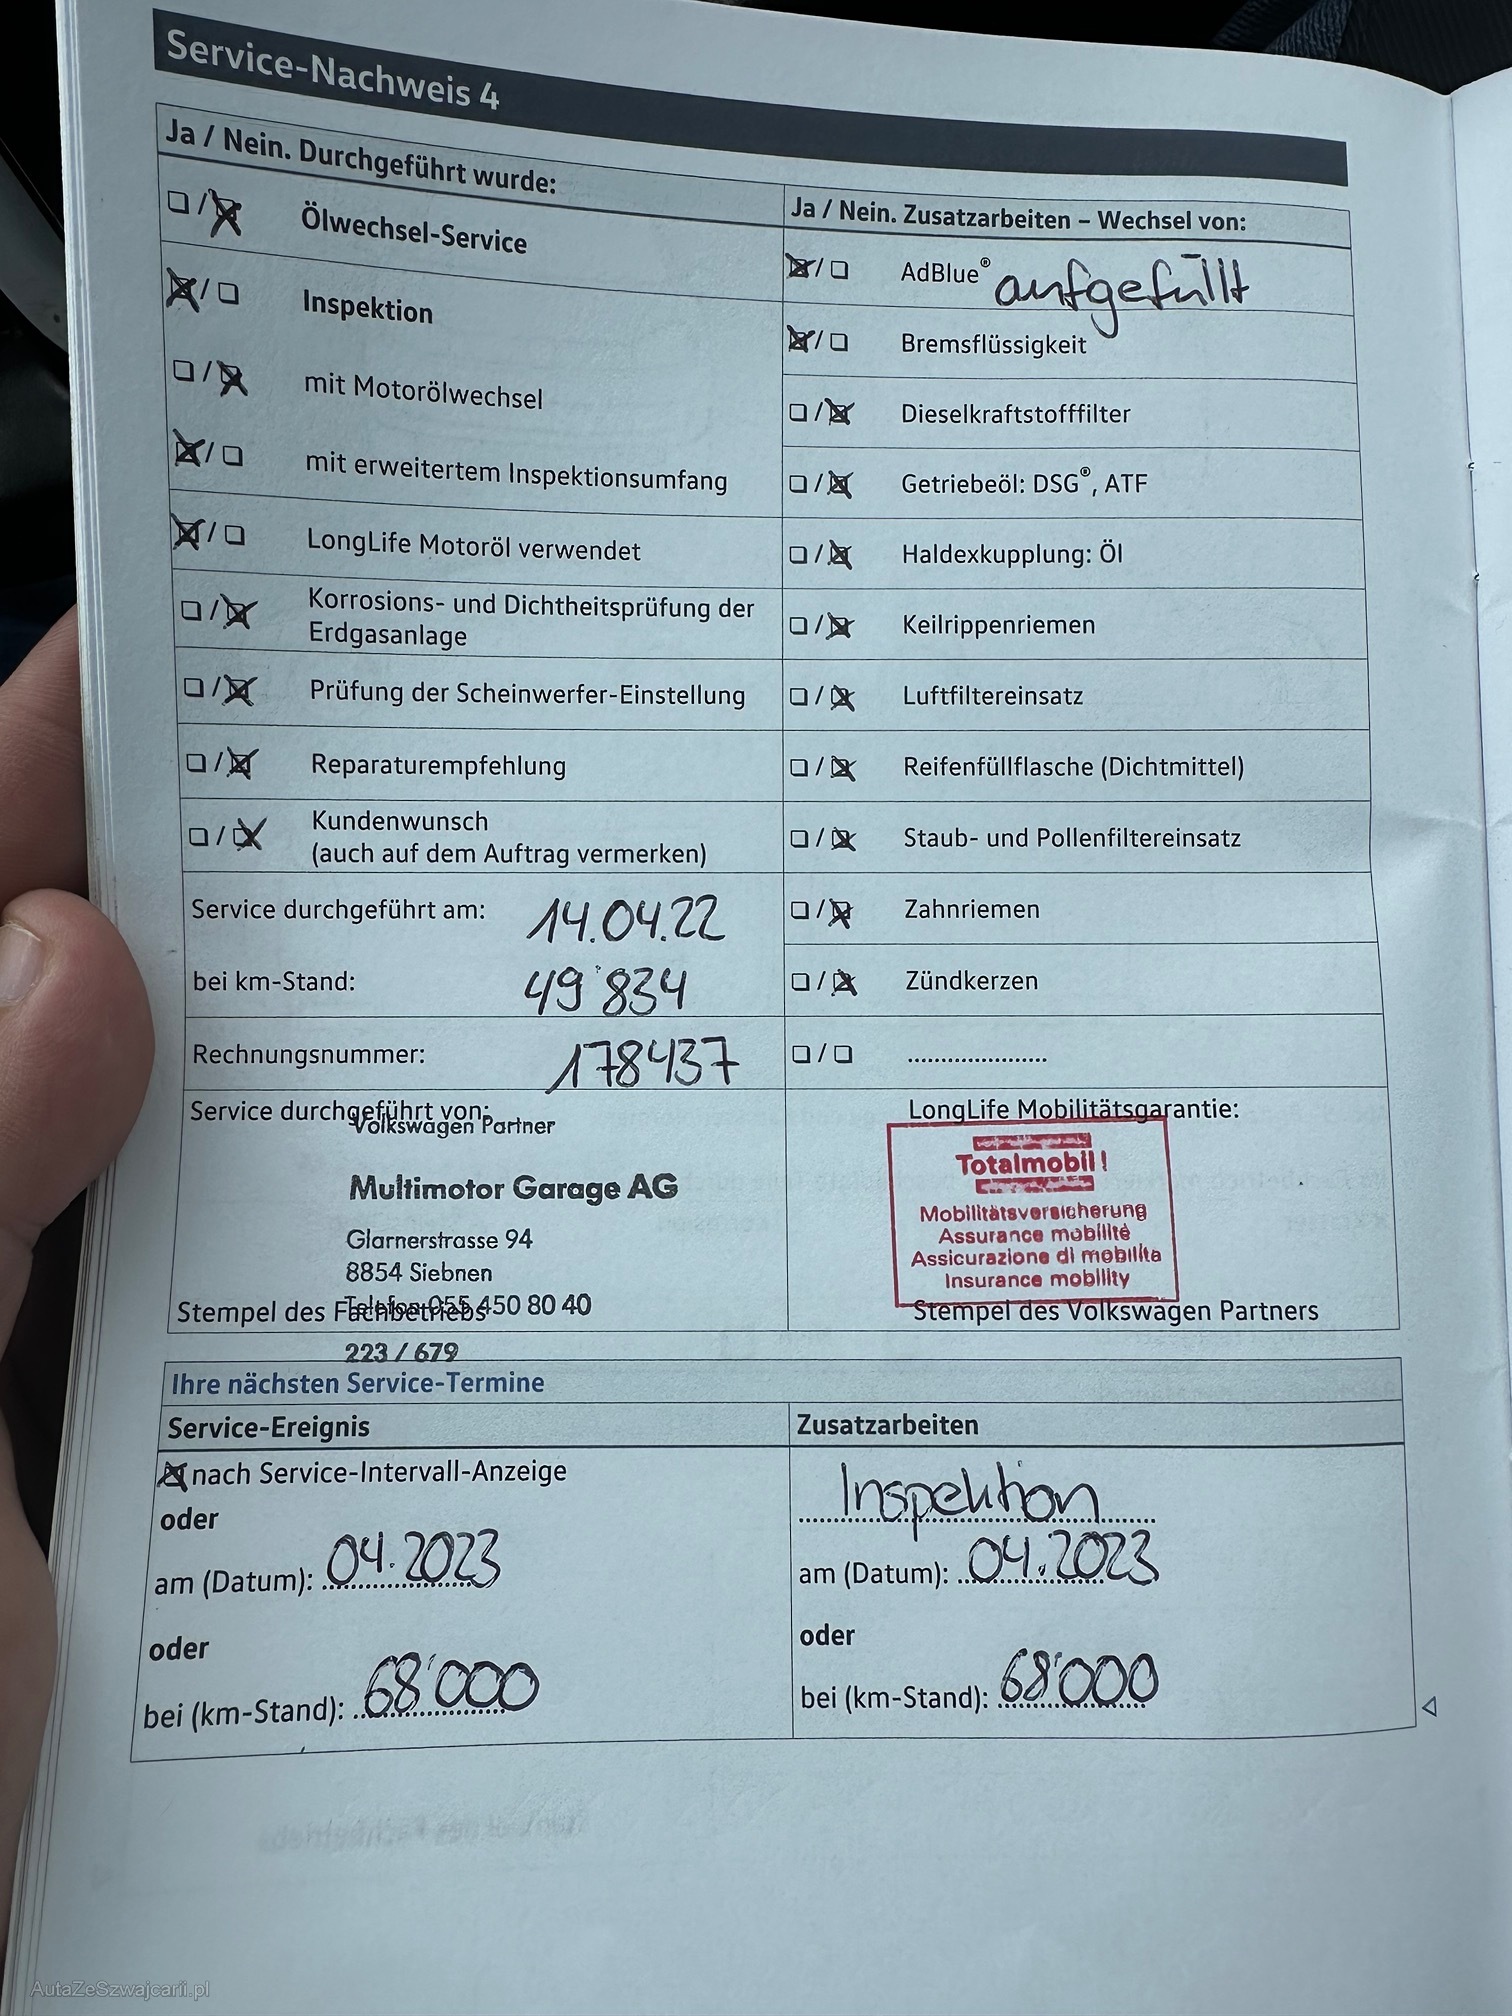 Service-Nachweis 4
Ja / Nein. Durchgeführt wurde:
Ölwechsel-Service
Inspektion
mit Motorölwechsel
mit erweitertem Inspektionsumfang
LongLife Motoröl verwendet
Korrosions- und Dichtheitsprüfung der
Erdgasanlage
Prüfung der Scheinwerfer-Einstellung
Reparaturempfehlung
Kundenwunsch
(auch auf dem Auftrag vermerken)
Service durchgeführt am: 14.04.22
bei km-Stand: 49'834
Rechnungsnummer: 178437
Service durchgeführt von:
Volkswagen Partner
Multimotor Garage AG
Glarnerstrasse 94
8854 Siebnen
Telefon 055 450 80 40
Stempel des Fachbetriebs
223 / 679
Ja / Nein. Zusatzarbeiten – Wechsel von:
AdBlue® aufgefüllt
Bremsflüssigkeit
Dieselkraftstofffilter
Getriebeöl: DSG®, ATF
Haldexkupplung: Öl
Keilrippenriemen
Luftfiltereinsatz
Reifenfüllflasche (Dichtmittel)
Staub- und Pollenfiltereinsatz
Zahnriemen
Zündkerzen
.....................
LongLife Mobilitätsgarantie:
Totalmobil!
Mobilitätsversicherung
Assurance mobilité
Assicurazione di mobilita
Insurance mobility
Stempel des Volkswagen Partners
Ihre nächsten Service-Termine
Service-Ereignis
nach Service-Intervall-Anzeige
oder
am (Datum): 04.2023
oder
bei (km-Stand): 68'000
Zusatzarbeiten
Inspektion
am (Datum): 04.2023
oder
bei (km-Stand): 68'000
AutaZeSzwajcarii.pl